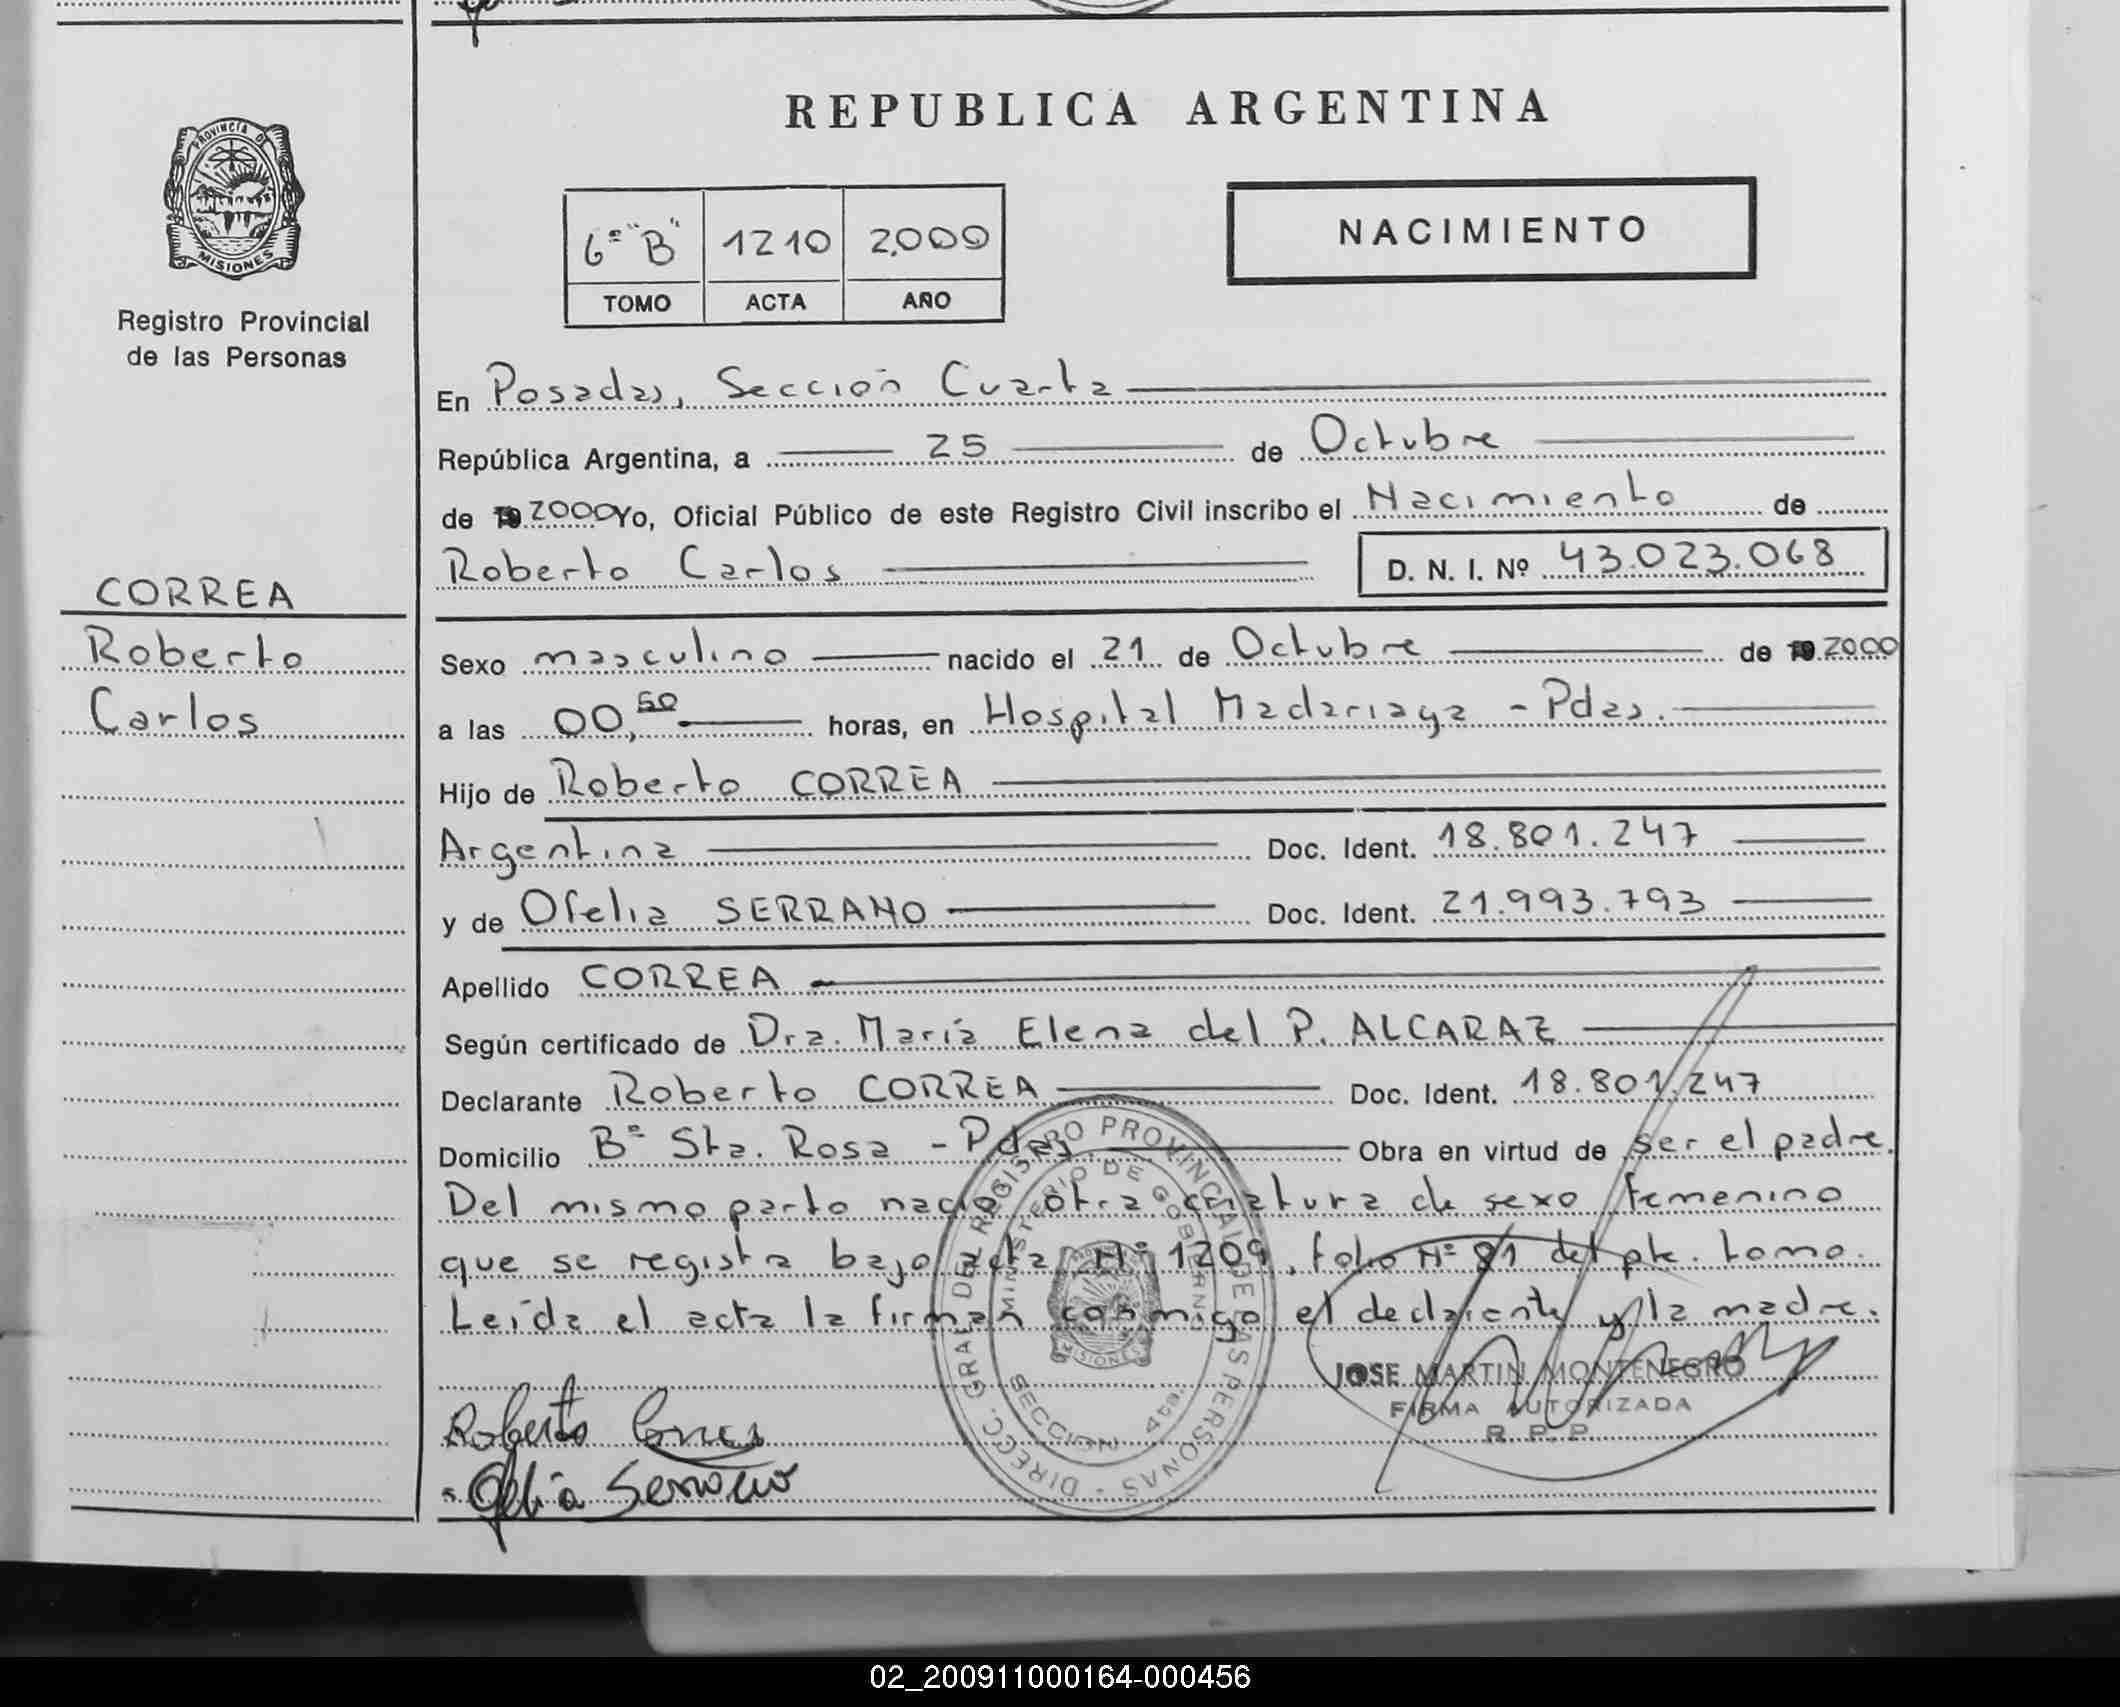 REPUBLICA ARGENTINA
PROVINCIA DE
MISIONES
Registro Provincial
de las Personas
6º "B" 1210 2.000
TOMO ACTA AÑO
NACIMIENTO
En Posadas, Sección Cuarta
República Argentina, a 25 de Octubre
de 19 2000 Yo, Oficial Público de este Registro Civil inscribo el Nacimiento de
Roberto Carlos D. N. I. Nº 43.023.068
CORREA
Roberto
Carlos
Sexo masculino nacido el 21 de Octubre de 19 2000
a las 00,50 horas, en Hospital Madariaga - Pdas.
Hijo de Roberto CORREA
Argentina Doc. Ident. 18.801.247
y de Ofelia SERRANO Doc. Ident. 21.993.793
Apellido CORREA
Según certificado de Dra. María Elena del P. ALCARAZ
Declarante Roberto CORREA Doc. Ident. 18.801.247
Domicilio Bº Sta. Rosa - Pdas. Obra en virtud de ser el padre.
Del mismo parto nació otra criatura de sexo femenino
que se registra bajo acta Nº 1209, folio Nº 81 del pte. tomo.
Leída el acta la firman conmigo el declarante y la madre.
JOSE MARTIN MONTENEGRO
FIRMA AUTORIZADA
R. P. P.
Roberto Correa
Ofelia Serrano
DIRECC. GRAL. DEL REGISTRO PROVINCIAL DE LAS PERSONAS
MINISTERIO DE GOBIERNO
MISIONES
SECCION 4ta.
02_200911000164-000456